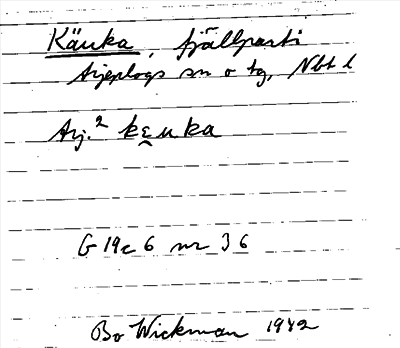 Käuka, fjällparti
Arjeplogs sn o tg, Nbt l
Arj.² kɛ̭uka
G 19c 6 nr 36
Bo Wickman 1942